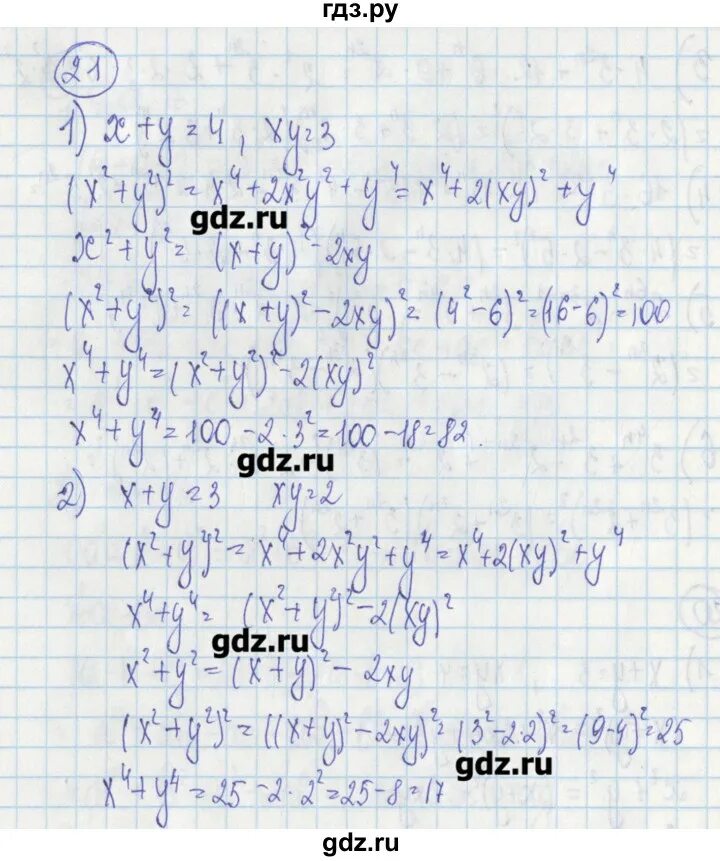 гдз.ру
21
1) x + y = 4, xy = 3
(x² + y²)² = x⁴ + 2x²y² + y⁴ = x⁴ + 2(xy)² + y⁴
gdz.ru
x² + y² = (x + y)² - 2xy
(x² + y²)² = ((x + y)² - 2xy)² = (4² - 6)² = (16 - 6)² = 100
x⁴ + y⁴ = (x² + y²)² - 2(xy)²
x⁴ + y⁴ = 100 - 2 · 3² = 100 - 18 = 82.
gdz.ru
2) x + y = 3 xy = 2
(x² + y²)² = x⁴ + 2x²y² + y⁴ = x⁴ + 2(xy)² + y⁴
x⁴ + y⁴ = (x² + y²)² - 2(xy)²
gdz.ru
x² + y² = (x + y)² - 2xy
(x² + y²)² = ((x + y)² - 2xy)² = (3² - 2·2)² = (9 - 4)² = 25
gdz.ru
x⁴ + y⁴ = 25 - 2 · 2² = 25 - 8 = 17
gdz.ru